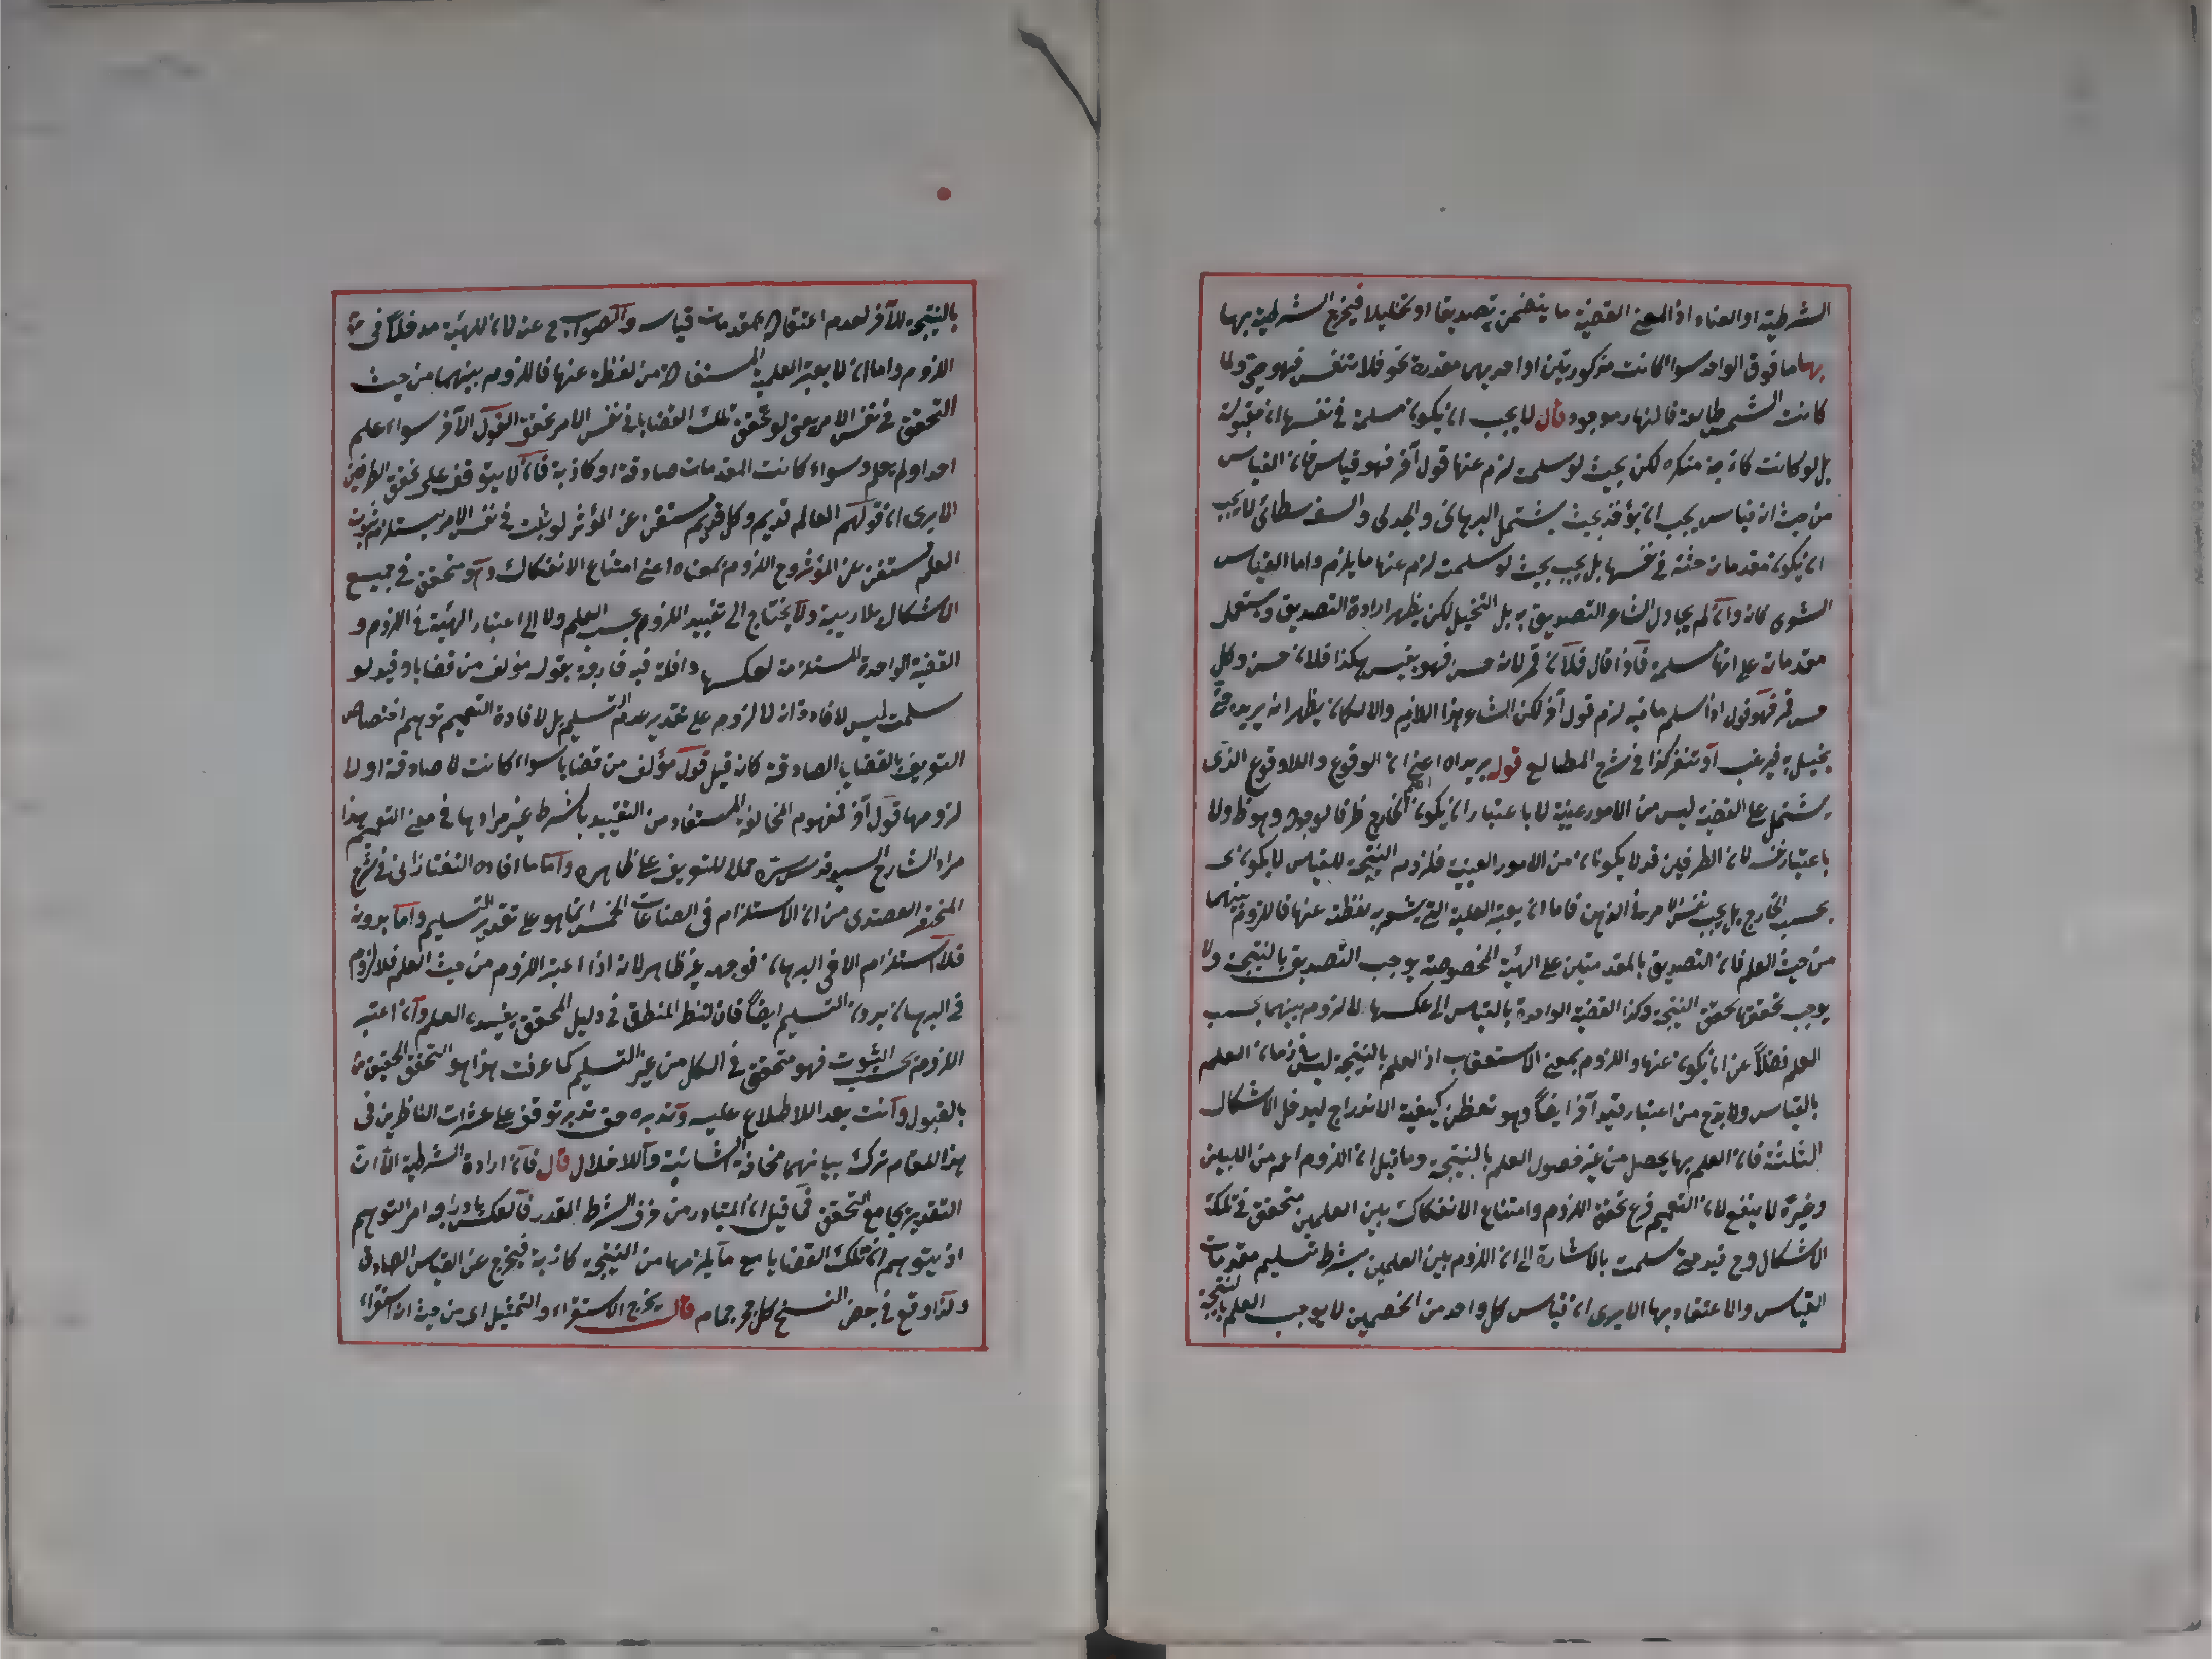 الشرطية او العناد اذ المعنى القضية ما يتضمن تصديقا او تخييلا فيخرج الشرطية بها
بها ما فوق الواحد سواء كانت مذكورتين او احديهما مقدرة نحو فلان تنفس فهو حى ولما
كانت الشمس طالعة فالنهار موجود قال لا يجب ان يكون مسلمة فى نفسها اى مقبولة
بل لو كانت كاذبة منكرة لكن بحيث لو سلمت لزم عنها قول آخر فهو قياس فان القياس
من حيث انه قياس يجب ان يؤخذ بحيث يشتمل البرهانى والجدلى والسوفسطائى لا يجب
ان يكون مقدماته حقة فى نفسها بل يجب بحيث لو سلمت لزم عنها ما يلزم واما القياس
الشعرى فانه وان لم يحاول الشاعر التصديق به بل التخييل لكن يظهر ارادة التصديق ويستعمل
مقدماته على انها مسلمة فاذا قال فلان قمر لانه حسن فهو يقيس هكذا فلان حسن وكل
حسن قمر فهو قول اذا سلم ما فيه لزم قول آخر لكن الشاعر بهذا اللازم والا لكان يظهر انه يريده حتى
يخيل به فيرغب او تنفر كذا فى شرح المطالع قوله يريد اه اعنى ان الوقوع واللاوقوع الذى
يشتمل على القضية ليس من الامور عينية لا باعتبار ان يكون الخارج ظرفا لوجوده وهو ظ ولا
باعتبار نفسه لان الطرفين قد لا يكونان من الامور العينية فلزوم النتيجة للقياس لا يكون
بحسب الخارج بل بحسب نفس الامر فى الذهن فاما ان يعتبر العلية التى يشعر به لفظة عنها فاللزوم بينهما
من حيث العلم فان التصديق بالمقدمتين على الهيئة المخصوصة يوجب التصديق بالنتيجة ولا
يوجب تحققها تحقق النتيجة وكذا القضية الواحدة بالقياس الى عكسها لا لزوم بينهما بحسب
العلم فضلا عن ان يكون عنها واللزوم بمعنى الاستعقاب اذ العلم بالنتيجة ليس فى زمان العلم
بالقياس ولا بد ح من اعتبار قيد آخر ايضا وهو تفطن كيفية الاندراج ليدخل الاشكال
الثلثة فان العلم بها يحصل من غير حصول العلم بالنتيجة وما قيل ان اللزوم اعم من البين
وغيره لا ينفع لان التعميم فرع تحقق اللزوم وامتناع الانفكاك بين العلمين متحقق فى تلك
الاشكال وح قيد متى سلمت بالاشارة الى ان اللزوم بين العلمين بشرط تسليم مقدمات
القياس والاعتقاد بها الا يرى ان قياس كل واحد من الخصمين لا يوجب العلم بالنتيجة
بالنتيجة للآخر لعدم اعتقاده بمقدمات قياسه والصواب ح عنه لان للهيئة مدخلا فى
اللزوم واما ان لا يعتبر العلمية المستفادة من لفظة عنها فاللزوم بينهما من حيث
التحقق فى نفس الامر يعنى لو تحقق تلك القضايا فى نفس الامر تحقق القول الآخر سواء علم
احد او لم يعلم وسواء كانت المقدمات صادقة او كاذبة فانه لا يتوقف على تحقق الطرفين
الا يرى ان قولهم العالم قديم وكل قديم مستغن عن المؤثر لو ثبت فى نفس الامر يستلزم ثبوت
العلم مستغن عن المؤثر وح اللزوم بمعناه اعنى امتناع الانفكاك وهو متحقق فى جميع
الاشكال بلا ريبة ولا يحتاج الى تقييد اللزوم بحسب العلم ولا الى اعتبار الهيئة فى اللزوم و
القضية الواحدة المستلزمة لعكسها داخلة فيه خارجة بقوله مؤلف من قضايا وقيد لو
سلمت ليس لافادة انه لا لزوم على تقدير عدم التسليم بل لافادة التعميم توهم اختصاص
التعريف بالقضايا الصادقة كانه قيل قول مؤلف من قضايا سواء كانت لا صادقة اولا
لزومها قول آخر فمفهوم المخالفة المستفاد من التقييد بالشرط غير مراد ها فى معنى التعميم هذا
مراد الشارح السيد قدس سره حمالا للتعريف على ظاهره واما ما افاده التفتازانى فى شرح
المختصر العضدى من ان الاستلزام فى الصناعات الخمس انما هو على تقدير التسليم واما بدونه
فلا استلزام الا فى البرهان فوجهه غير ظاهر لانه اذا اعتبر اللزوم من حيث العلم فلا لزوم
فى البرهان بدون التسليم ايضا فان لنظر المنطق فى دليل المحقق يفيد العلم وان اعتبر
اللزوم بحسب الثبوت فهو متحقق فى الكل من غير التسليم كما عرفت هذا هو التحقق الحقيق
بالقبول وانت بعد الاطلاع عليه وتدبره حق تدبر توقف على عثرات الناظرين فى
هذا المقام تركت بيانها مخافة الشائبة والاخلال قال فان ارادة الشرطية الا ان
التقدير يجامع التحقق فما قيل ان المتبادر من حرف الشرط المقدر فالعكس بادراجه امر التوهم
اذ يتوهم ان تلك القضايا مع ما يلزمها من النتيجة كاذبة فيخرج عن القياس الصادق
ولذا وقع فى بعض النسخ كل حجر جماد قال يخرج الاستقراء والتمثيل اى من حيث انه استقراء